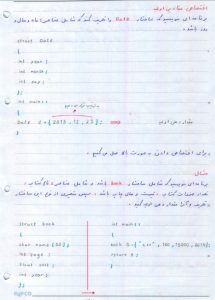 اختصاص مقادیر اولیه
برنامه ای بنویسید که ساختار Date را تعریف کند که شامل عناصر: ماه و سال و
روز باشد.
struct Date
{
int year;
int month;
int day;
};
int main()
{
Date z = {2013, 12, 23};
مقداردهی اولیه
برای اختصاص دادن به صورت بالا عمل می کنیم.
مثال
برنامه ای بنویسید که شامل ساختار book باشد و شامل عناصر: نام کتاب،
تعداد صفحات کتاب، قیمت و سال چاپ باشد. سپس متغیری از نوع این ساختار
تعریف و آنرا مقدار دهی اولیه کنید.
struct book
{
char name[50];
int page;
float cost;
int year;
};
int main()
{
book b = {"c++", 100, 15000, 2014};
return 0;
}